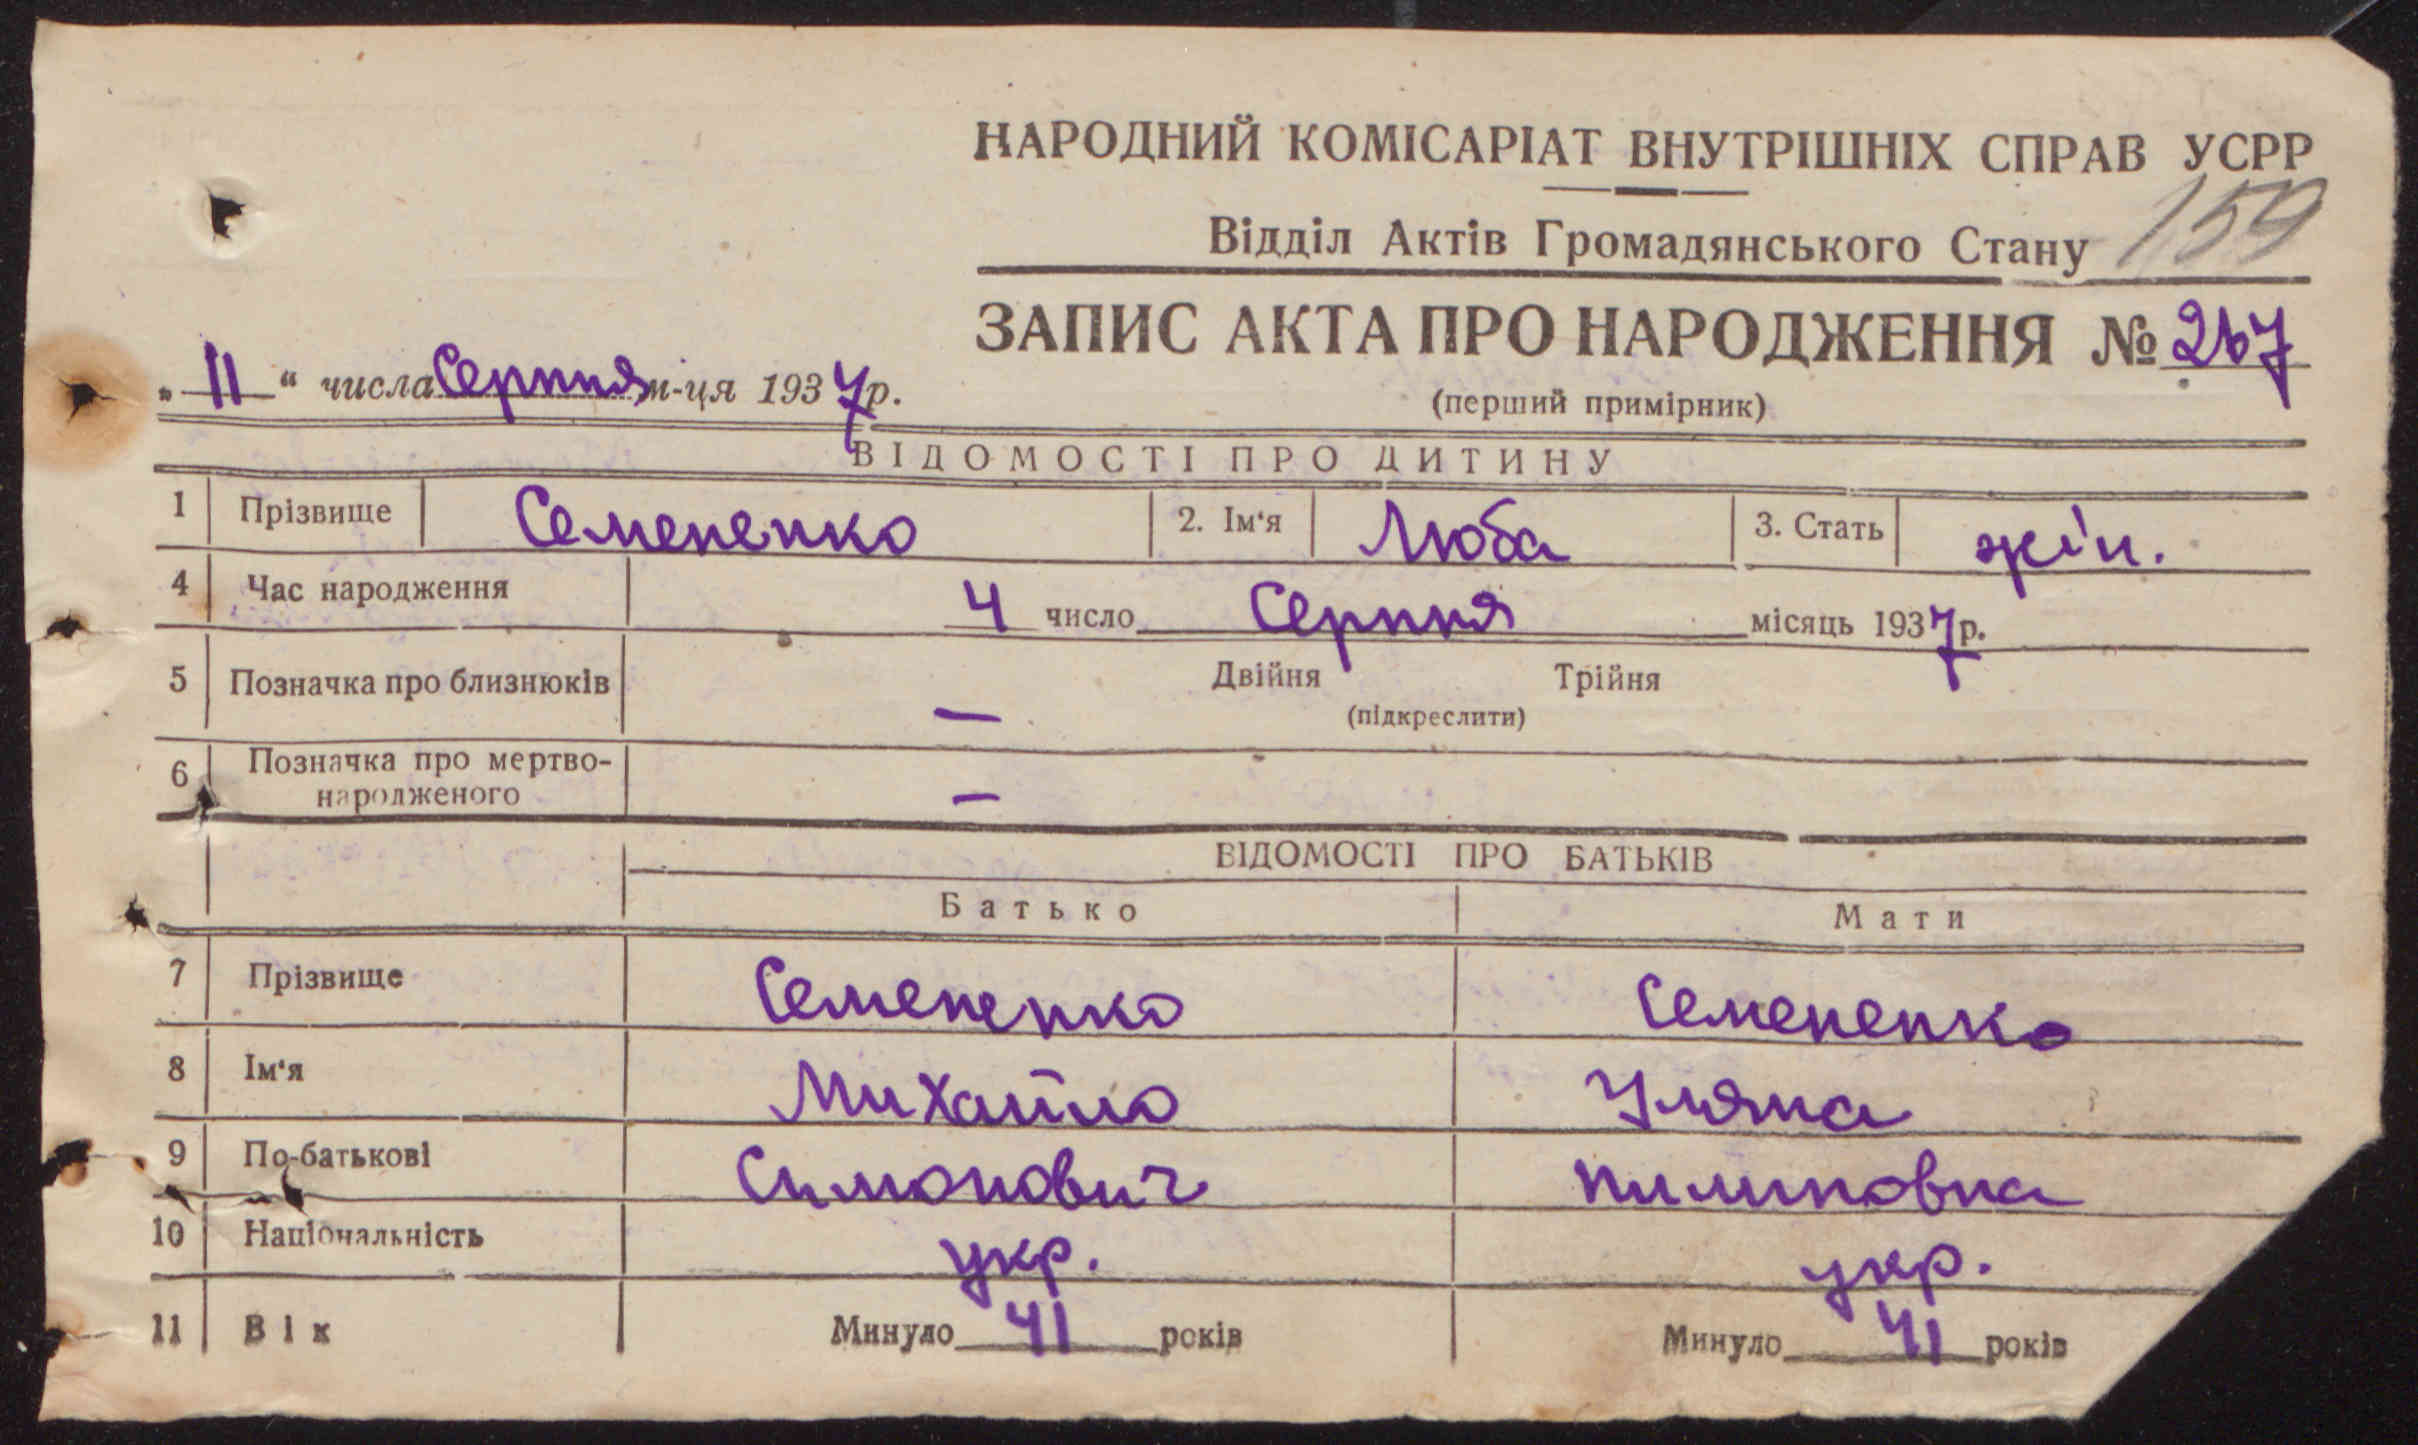 НАРОДНИЙ КОМІСАРІАТ ВНУТРІШНІХ СПРАВ УСРР
Відділ Актів Громадянського Стану 159
ЗАПИС АКТА ПРО НАРОДЖЕННЯ № 267
„ 11 “ числа Серпня м-ця 1937 р.
(перший примірник)
ВІДОМОСТІ ПРО ДИТИНУ
1 Прізвище Семененко 2. Ім‘я Люба 3. Стать жін.
4 Час народження 4 число Серпня місяць 1937 р.
5 Позначка про близнюків — Двійня Трійня
(підкреслити)
6 Позначка про мертво-
народженого —
ВІДОМОСТІ ПРО БАТЬКІВ
Батько Мати
7 Прізвище Семененко Семененко
8 Ім‘я Михайло Уляна
9 По-батькові Симонович Пилиповна
10 Національність укр. укр.
11 Вік Минуло 41 років Минуло 41 років